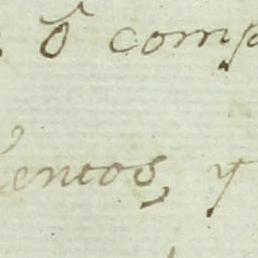 ô comp
entos, y